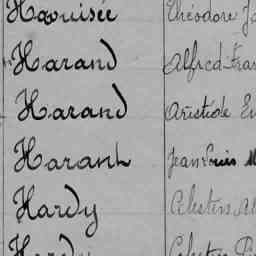 Haouisée Théodore
Harand Alfred
Harand Aristide
Harant Jean Louis
Hardy Célestin
Hardy Célestin